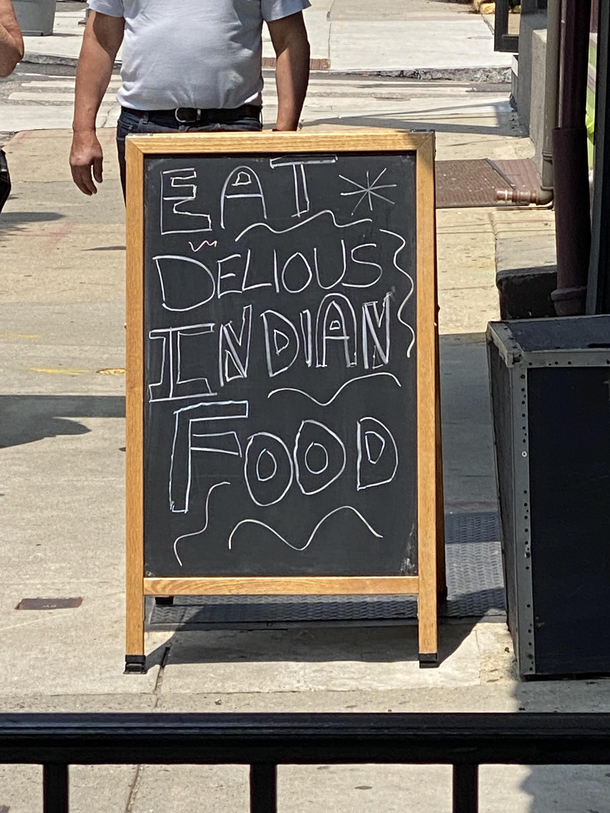 EAT
DELIOUS
INDIAN
FOOD